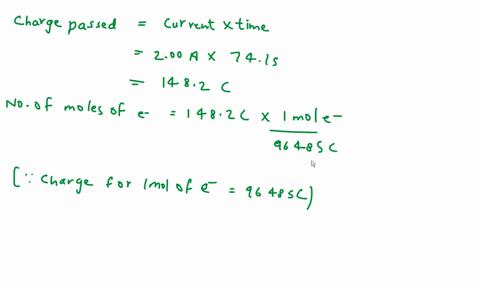 Charge passed = Current x time
= 2.00 A x 74.1s
= 148.2 C
No. of moles of e- = 148.2C x 1 mol e-
96485C
[∵ Charge for 1mol of e- = 96485C)